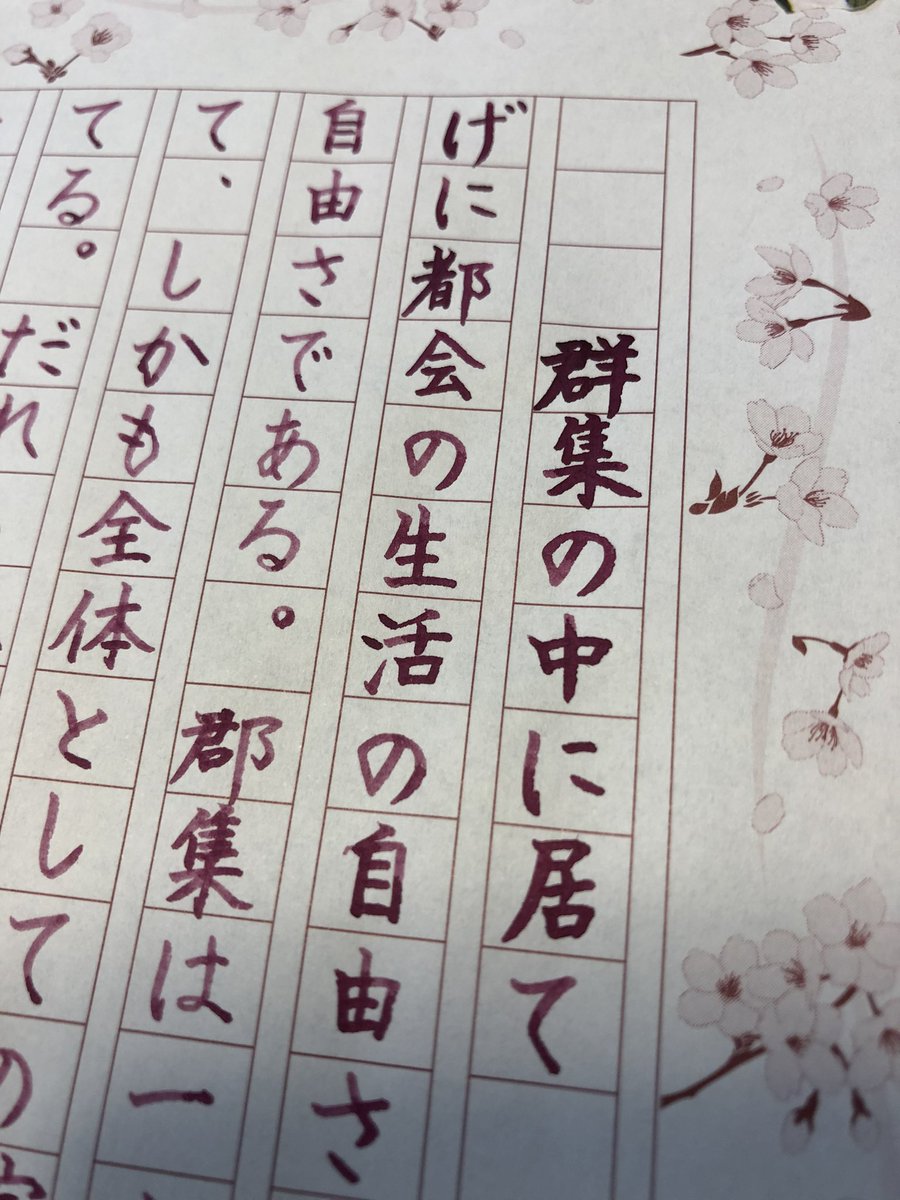 群集の中に居て
げに都会の生活の自由さ
自由さである。郡集は一
て、しかも全体としての
てる。だれ